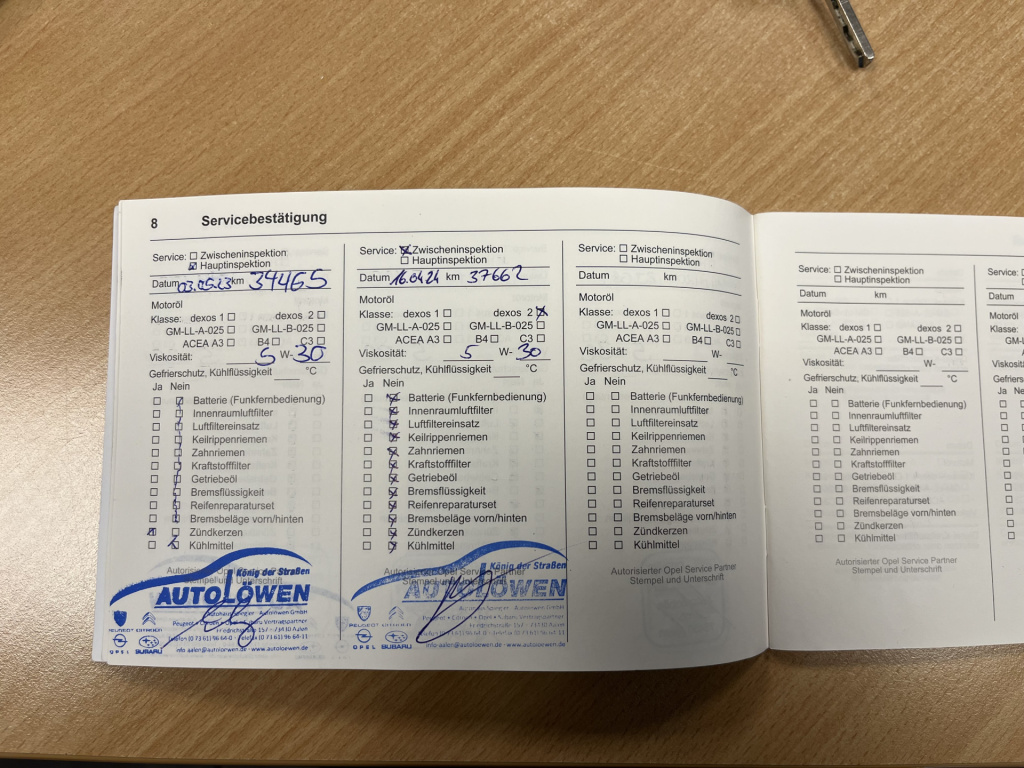 8 Servicebestätigung
Service: Zwischeninspektion
Hauptinspektion
Datum 03.05.23 km 34465
Motoröl
Klasse: dexos 1 dexos 2
GM-LL-A-025 GM-LL-B-025
ACEA A3 B4 C3
Viskosität: 5 W- 30
Gefrierschutz, Kühlflüssigkeit °C
Ja Nein
Batterie (Funkfernbedienung)
Innenraumluftfilter
Luftfiltereinsatz
Keilrippenriemen
Zahnriemen
Kraftstofffilter
Getriebeöl
Bremsflüssigkeit
Reifenreparaturset
Bremsbeläge vorn/hinten
Zündkerzen
Kühlmittel
Autorisierter Opel Service Partner
Stempel und Unterschrift
König der Straßen
AUTOLÖWEN
Autohaus Spiegler · Autolöwen GmbH
Peugeot • Citroën • Opel • Subaru Vertragspartner
Telefon (0 73 61) 96 64-0 · Telefax (0 73 61) 96 64-11
info-aalen@autoloewen.de · www.autoloewen.de
PEUGEOT CITROËN
OPEL SUBARU
Service: Zwischeninspektion
Hauptinspektion
Datum 16.04.24 km 37662
Motoröl
Klasse: dexos 1 dexos 2
GM-LL-A-025 GM-LL-B-025
ACEA A3 B4 C3
Viskosität: 5 W- 30
Gefrierschutz, Kühlflüssigkeit °C
Ja Nein
Batterie (Funkfernbedienung)
Innenraumluftfilter
Luftfiltereinsatz
Keilrippenriemen
Zahnriemen
Kraftstofffilter
Getriebeöl
Bremsflüssigkeit
Reifenreparaturset
Bremsbeläge vorn/hinten
Zündkerzen
Kühlmittel
Autorisierter Opel Service Partner
Stempel und Unterschrift
König der Straßen
AUTOLÖWEN
Autohaus Spiegler · Autolöwen GmbH
Peugeot • Citroën • Opel • Subaru Vertragspartner
info-aalen@autoloewen.de · www.autoloewen.de
PEUGEOT CITROËN
OPEL SUBARU
Service: Zwischeninspektion
Hauptinspektion
Datum km
Motoröl
Klasse: dexos 1 dexos 2
GM-LL-A-025 GM-LL-B-025
ACEA A3 B4 C3
Viskosität: W-
Gefrierschutz, Kühlflüssigkeit °C
Ja Nein
Batterie (Funkfernbedienung)
Innenraumluftfilter
Luftfiltereinsatz
Keilrippenriemen
Zahnriemen
Kraftstofffilter
Getriebeöl
Bremsflüssigkeit
Reifenreparaturset
Bremsbeläge vorn/hinten
Zündkerzen
Kühlmittel
Autorisierter Opel Service Partner
Stempel und Unterschrift
Service: Zwischeninspektion
Hauptinspektion
Datum km
Motoröl
Klasse: dexos 1 dexos 2
GM-LL-A-025 GM-LL-B-025
ACEA A3 B4 C3
Viskosität: W-
Gefrierschutz, Kühlflüssigkeit °C
Ja Nein
Batterie (Funkfernbedienung)
Innenraumluftfilter
Luftfiltereinsatz
Keilrippenriemen
Zahnriemen
Kraftstofffilter
Getriebeöl
Bremsflüssigkeit
Reifenreparaturset
Bremsbeläge vorn/hinten
Zündkerzen
Kühlmittel
Autorisierter Opel Service Partner
Stempel und Unterschrift
Service:
Datum
Motoröl
Klasse:
GM-L
Ja